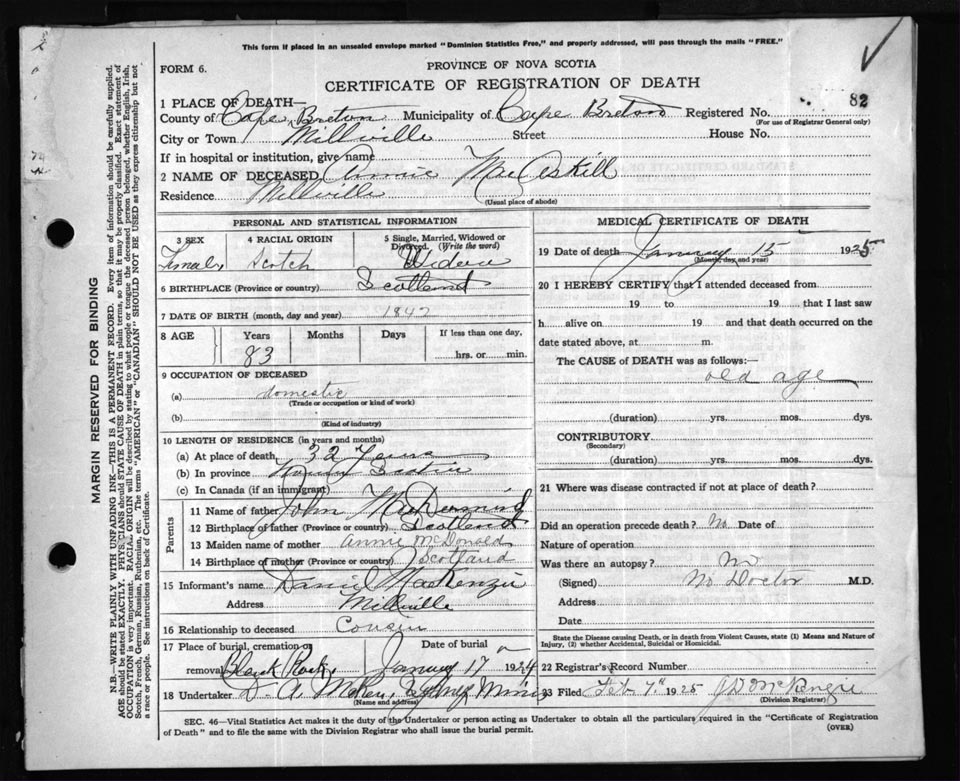 This form if placed in an unsealed envelope marked "Dominion Statistics Free," and properly addressed, will pass through the mails "FREE."
FORM 6.
PROVINCE OF NOVA SCOTIA
CERTIFICATE OF REGISTRATION OF DEATH
1 PLACE OF DEATH—
County of Cape Breton Municipality of Cape Breton Registered No. 82
(For use of Registrar General only)
City or Town Millville Street House No.
If in hospital or institution, give name
2 NAME OF DECEASED Annie MacAskill
Residence Millville
(Usual place of abode)
PERSONAL AND STATISTICAL INFORMATION
3 SEX 4 RACIAL ORIGIN 5 Single, Married, Widowed or
Divorced. (Write the word)
Female Scotch Widow
6 BIRTHPLACE (Province or country) Scotland
7 DATE OF BIRTH (month, day and year) 1842
8 AGE Years Months Days If less than one day,
83 hrs. or min.
9 OCCUPATION OF DECEASED
(a) domestic
(Trade or occupation or kind of work)
(b)
(Kind of industry)
10 LENGTH OF RESIDENCE (in years and months)
(a) At place of death 32 Years
(b) In province Scotia
(c) In Canada (if an immigrant)
Parents
11 Name of father John
12 Birthplace of father (Province or country) Scotland
13 Maiden name of mother Annie McDonald
14 Birthplace of mother (Province or country) Scotland
15 Informant's name Daniel MacKenzie
Address Millville
16 Relationship to deceased Cousin
17 Place of burial, cremation or Date of burial
removal Black Rock, January 17 1924
18 Undertaker Sydney Mines
(Name and address)
MEDICAL CERTIFICATE OF DEATH
19 Date of death January 15 1925
(Month, day and year)
20 I HEREBY CERTIFY that I attended deceased from
19 to 19 that I last saw
h alive on 19 and that death occurred on the
date stated above, at m.
The CAUSE of DEATH was as follows:
old age
(duration) yrs. mos. dys.
CONTRIBUTORY
(Secondary)
(duration) yrs. mos. dys.
21 Where was disease contracted if not at place of death?
Did an operation precede death? No Date of
Nature of operation
Was there an autopsy? No
(Signed) No Doctor M.D.
Address
Date
State the Disease causing Death, or in death from Violent Causes, state (1) Means and Nature
of Injury, (2) whether Accidental, Suicidal or Homicidal.
22 Registrar's Record Number
23 Filed Feb 7th 1925 J D McKenzie
(Division Registrar)
SEC. 46—Vital Statistics Act makes it the duty of the Undertaker or person acting as Undertaker to obtain all the particulars required in the "Certificate of Registration
of Death" and to file the same with the Division Registrar who shall issue the burial permit.
(OVER)
MARGIN RESERVED FOR BINDING
N.B.—WRITE PLAINLY WITH UNFADING INK—THIS IS A PERMANENT RECORD. Every item of information should be carefully supplied.
AGE should be stated EXACTLY. PHYSICIANS should STATE CAUSE OF DEATH in plain terms, so that it may be properly classified. Exact statement of
OCCUPATION is very important. RACIAL ORIGIN will be described by stating to what people or tongue the deceased person belonged, whether English, Irish,
Scotch, French, German, Russian, Ruthenian, etc. The terms "AMERICAN" or "CANADIAN" SHOULD NOT BE USED as they express citizenship but not
a race or people. See instructions on back of Certificate.